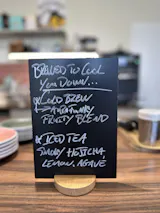 BREWED TO COOL
YOU DOWN...
COLD BREW
FRUITY BLEND
ICED TEA
SMOKY HOJICHA,
LEMON, AGAVE